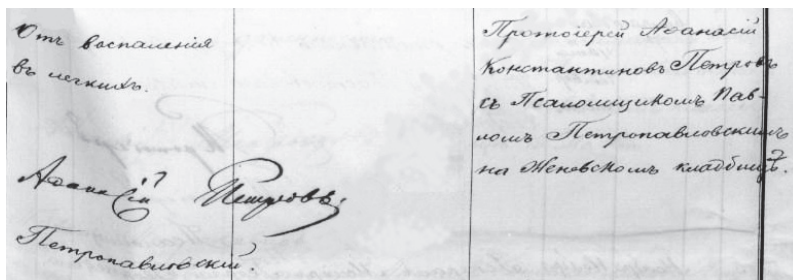 Отъ воспаленія
въ легкихъ.
Аѳанасій Петровъ.
Петропавловскій.
Протоіерей Аѳанасій
Константиновъ Петровъ
съ Псаломщикомъ Пав-
ломъ Петропавловскимъ
на Женевскомъ кладбищѣ.